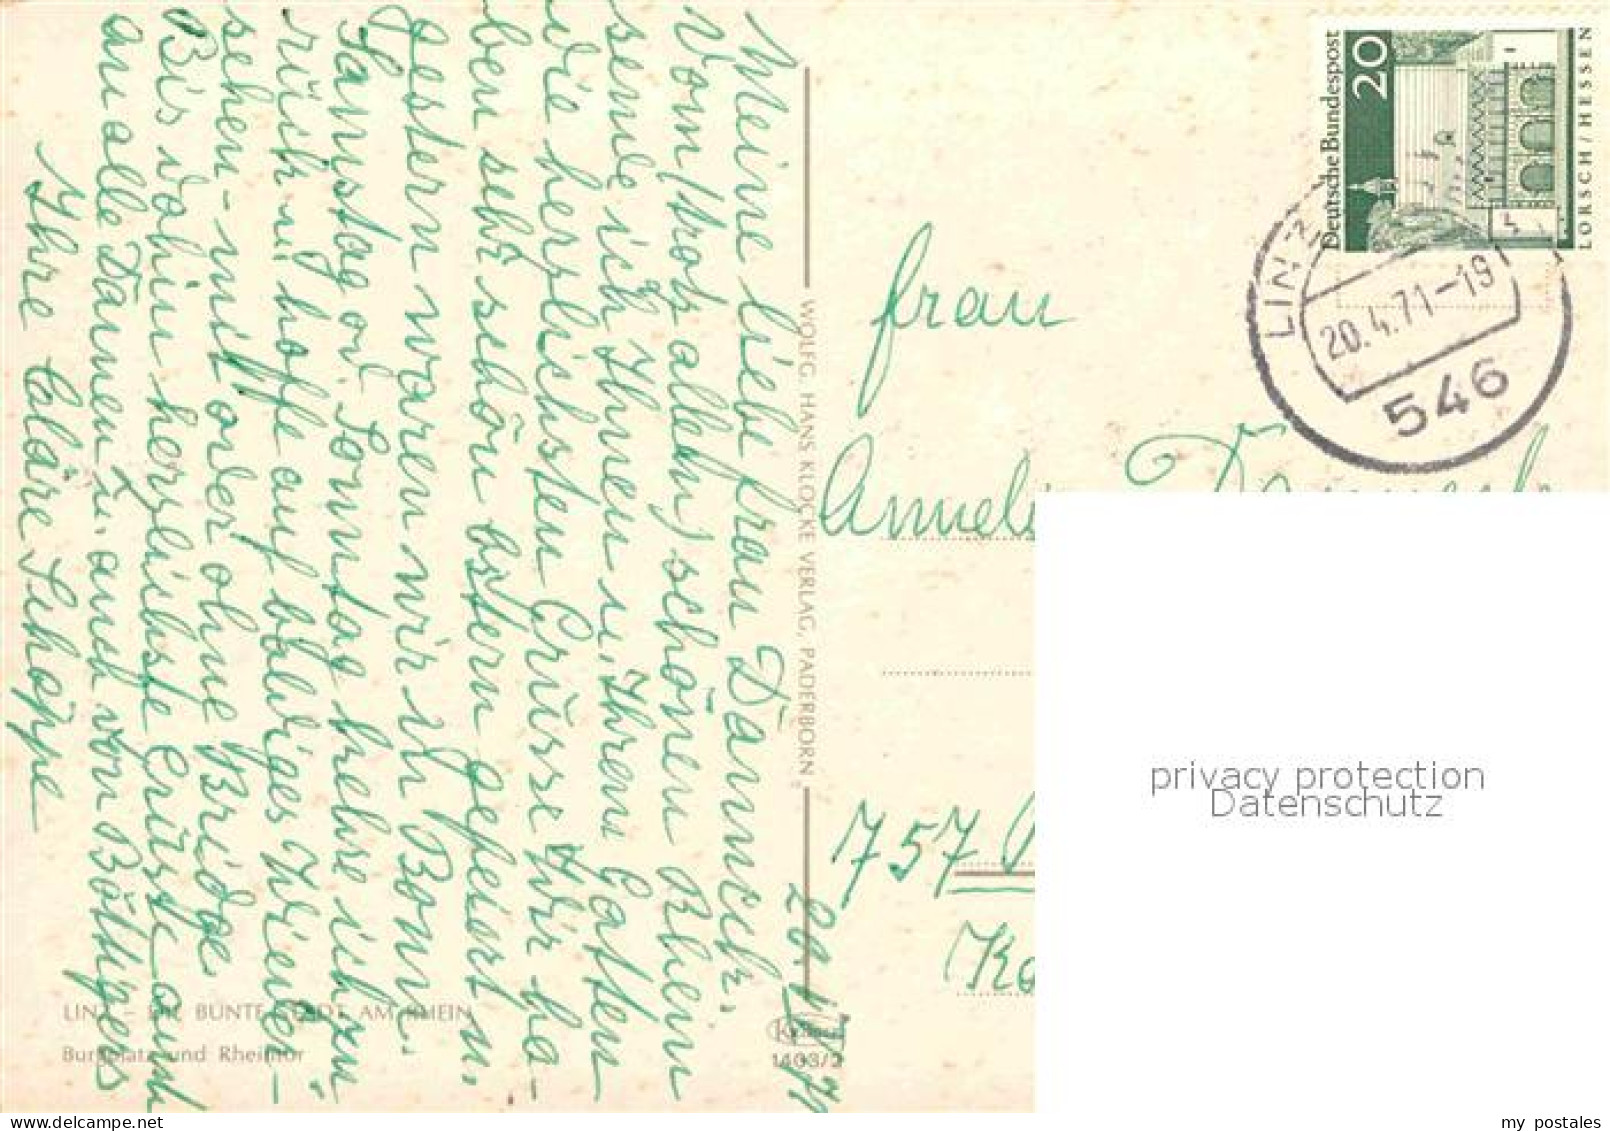 20. IV. 71
Meine liebe Frau Dannech.
Vom (trotz allem) schönen Rhein
sende ich Ihnen u. Ihrem Gatten
die herzlichsten Grüsse. Wir ha-
ben sehr schön Ostern gefeiert u.
gestern waren wir in Bonn.
Samstag od. Sonntag kehre ich zu
rück u. hoffe auf baldiges Wieder-
sehen - mit oder ohne Bridge
Bis dahin herzlichste Grüsse auch
an alle Damen u. auch von Böttgers
Ihre Claläre Schoppe
WOLFG. HANS KLOCKE VERLAG, PADERBORN
LINZ - DIE BUNTE STADT AM RHEIN
Burgplatz und Rheintor
1403/2
Deutsche Bundespost
20
LORSCH/HESSEN
LINZ
20.4.71-19
546
Frau
757
privacy protection
Datenschutz
my postales